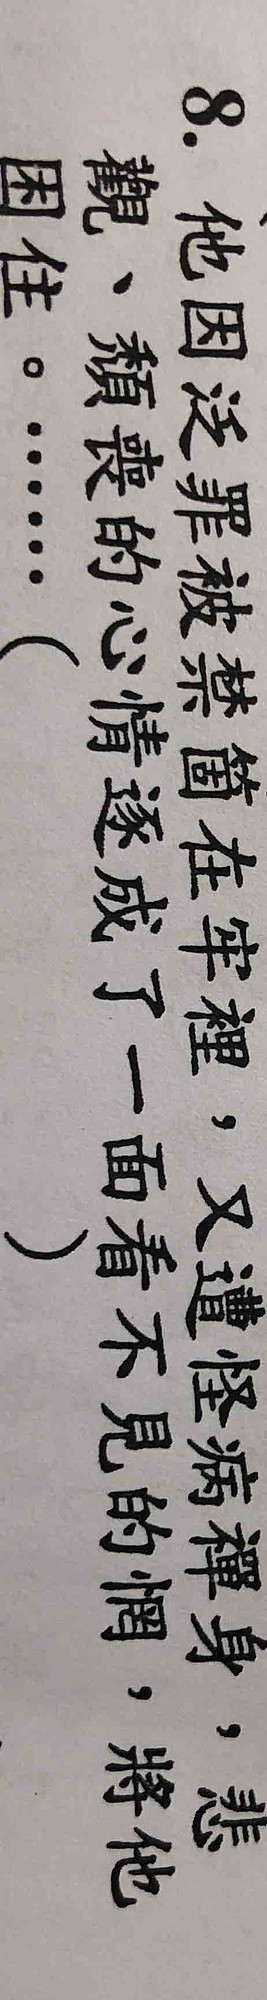 8. 他因泛罪被禁箇在牢裡，又遭怪病禪身，悲
觀、頹喪的心情逐成了一面看不見的惘，將他
困住。……（　　　）